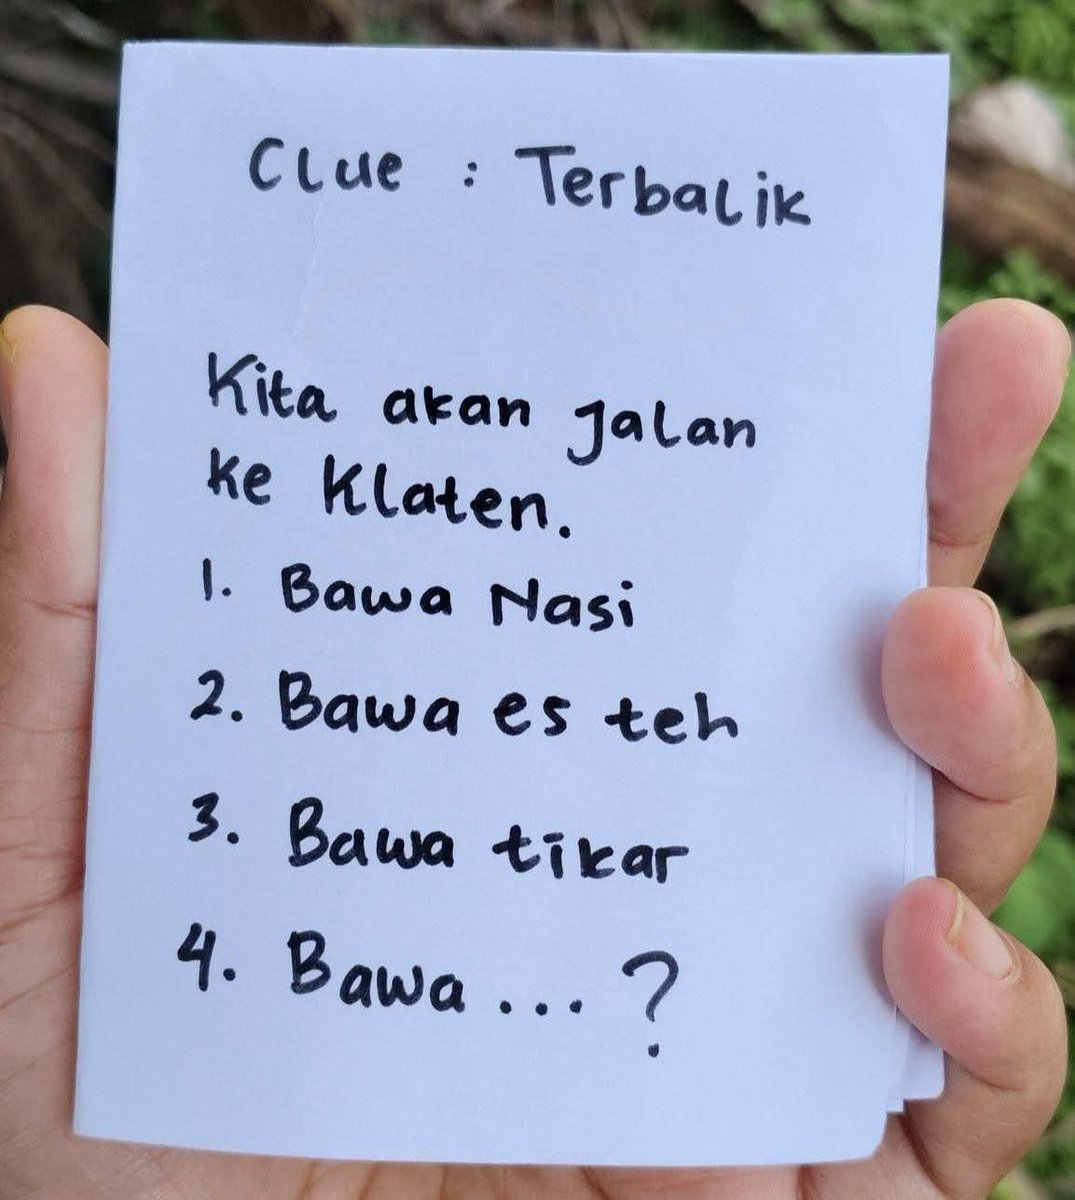 Clue : Terbalik
Kita akan jalan
ke Klaten.
1. Bawa Nasi
2. Bawa es teh
3. Bawa tikar
4. Bawa ... ?